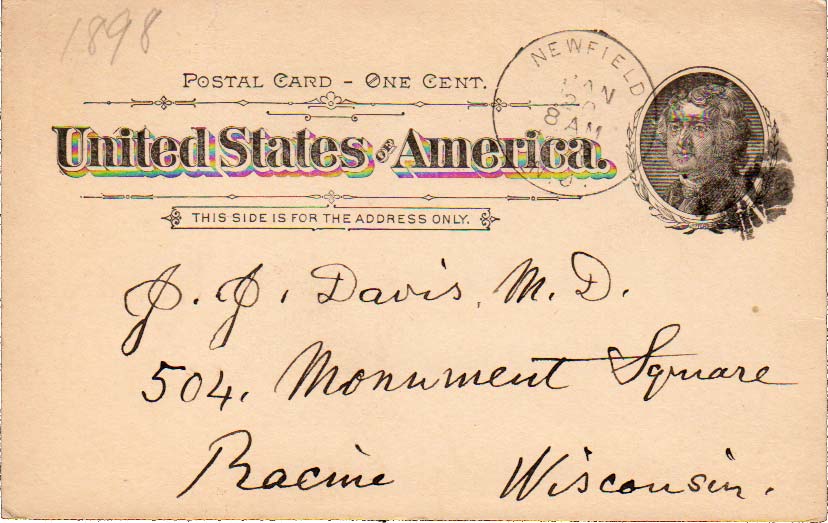 1898
POSTAL CARD - ONE CENT.
NEWFIELD
JAN
8 AM
N.J.
United States OF America.
THIS SIDE IS FOR THE ADDRESS ONLY.
J. J. Davis, M. D.
504. Monument Square
Racine Wisconsin.